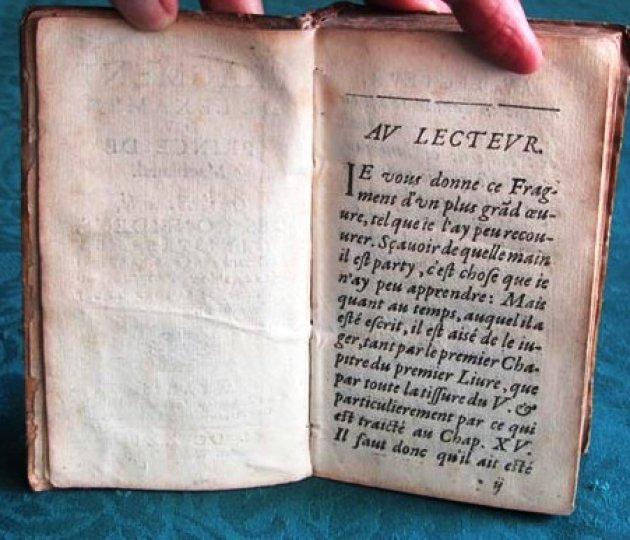 AV LECTEVR.
IE vous donne ce Frag-
ment d'vn plus grãd œu-
ure, tel que ie l'ay peu recou-
urer. Sçauoir de quelle main
il est party, c'est chose que ie
n'ay peu apprendre: Mais
quant au temps, auquel il a
esté escrit, il est aisé de le iu-
ger, tant par le premier Cha-
pitre du premier Liure, que
par toute la tissure du V. &
particulierement par ce qui
est traicté au Chap. XV.
Il faut donc qu'il ait esté
ij